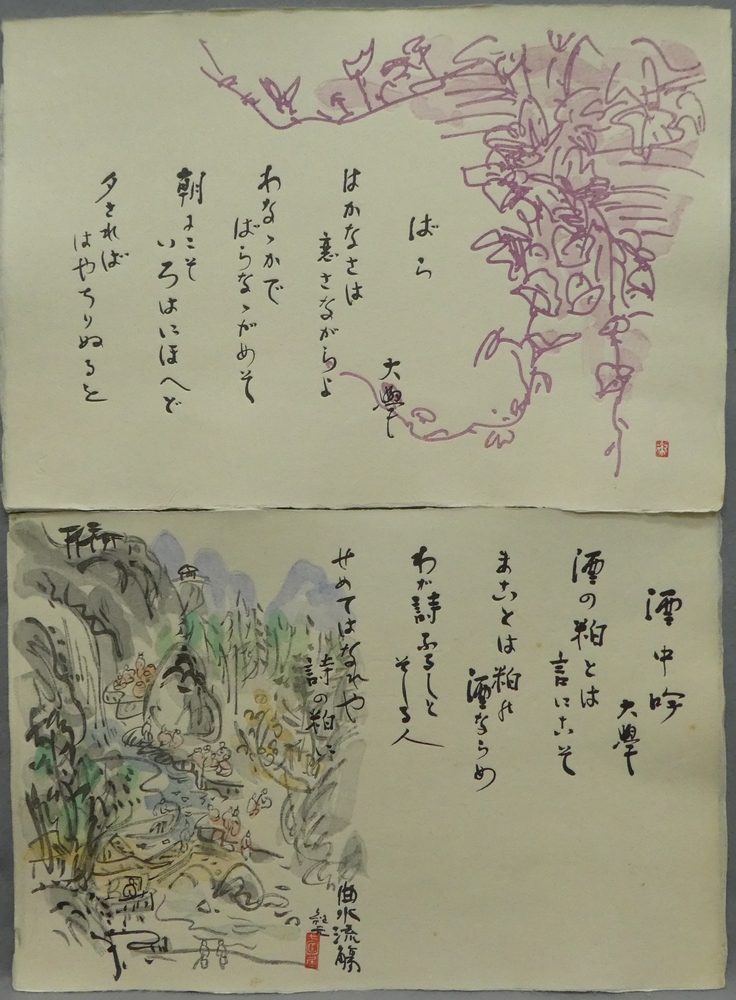 ばら
大學
はかなさは
恋さながらよ
わなゝかで
ばらなゝがめそ
朝にこそ
いろはにほへど
夕されば
はやちりぬるを
酒中吟
大學
酒の粕とは
言にこそ
まことは粕の
酒ならめ
わが詩ふるしと
そしる人
せめてはなれや
詩の粕に
曲水流觴